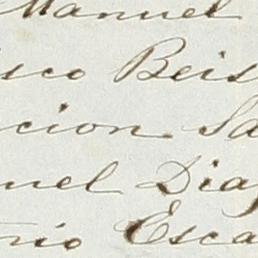 Manuel
sco Beis
cion Sa
uel Diaz
rio Esca